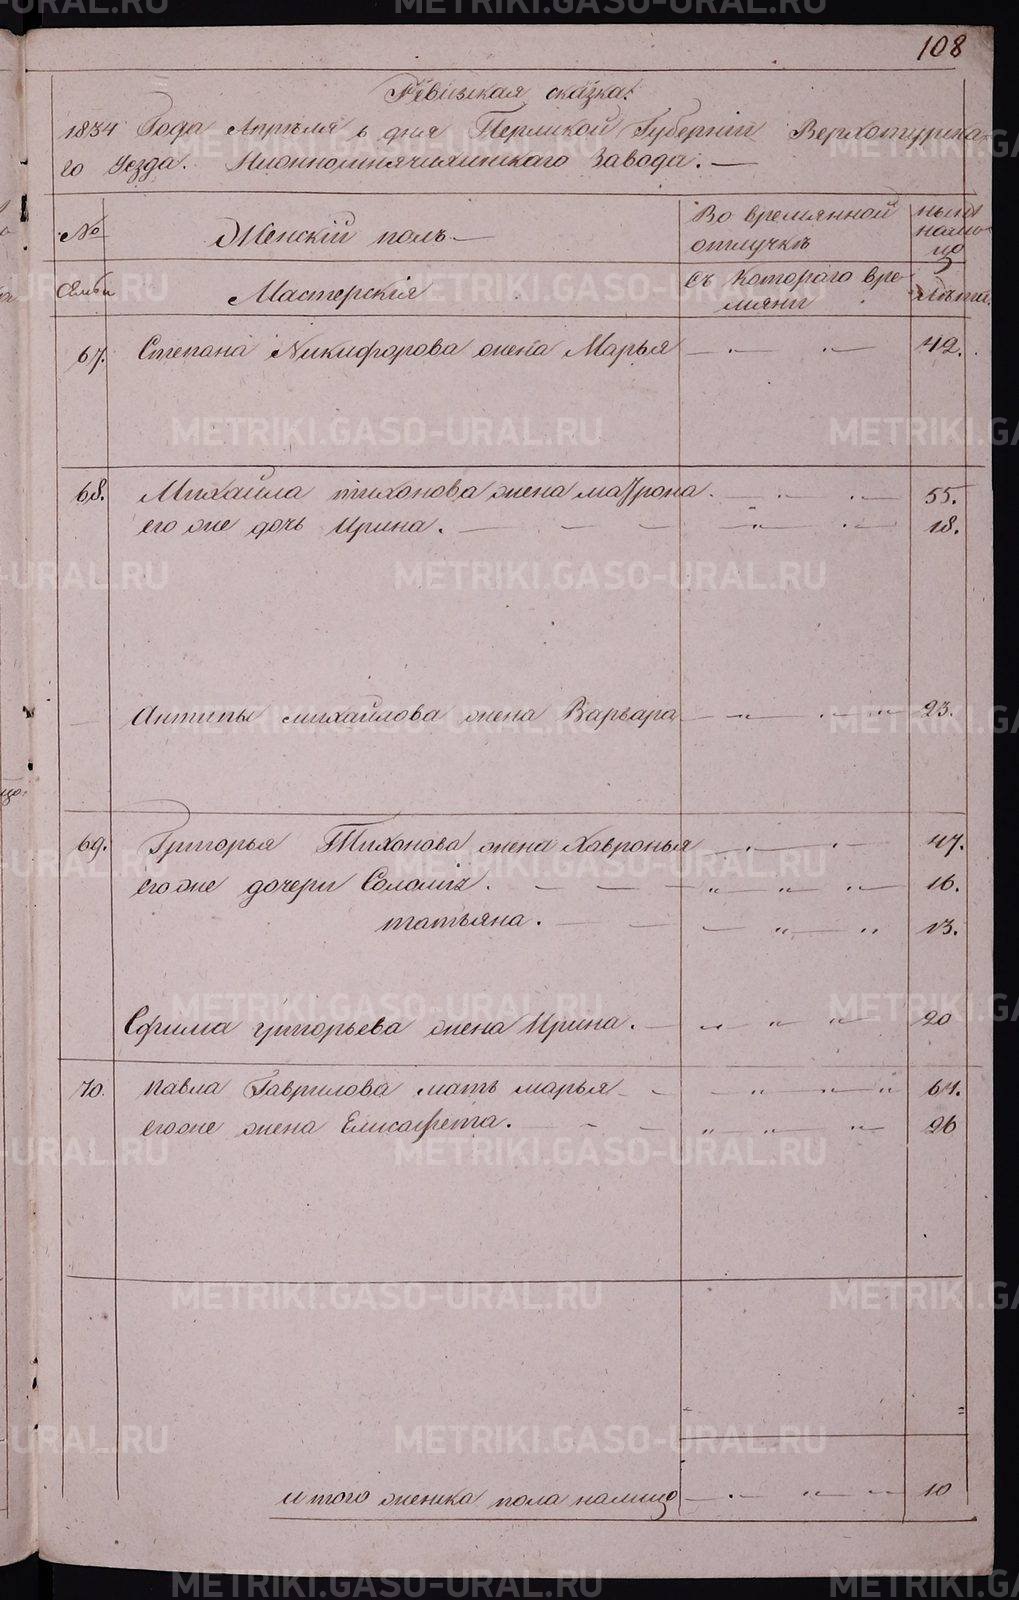 108
Ревизская сказка.
1834 Года Апреля 6 дня Пермской Губернiи Верхотурска-
го Уезда. Завода. —
№
Женскiй полъ —
Во времянной
отлучкѣ
ныне
нали-
цо
Семьи
Мастерскiя
Съ котораго вре-
мяни
Лѣта.
67. Степана Никифорова жена Марья 42.
68. Михайла тихонова жена маVрона. 55.
его же дочь Ирина. 18.
Антипы михайлова жена Варвара 23.
69. Григорья Тихонова жена Хавронья 47.
его же дочери Соломiя. 16.
татьяна. 13.
Ефима григорьева жена Ирина. 20
70. павла Гаврилова мать марья 61.
его же жена Елисавета. 26
итого женска пола налицо 10
METRIKI.GASO-URAL.RU